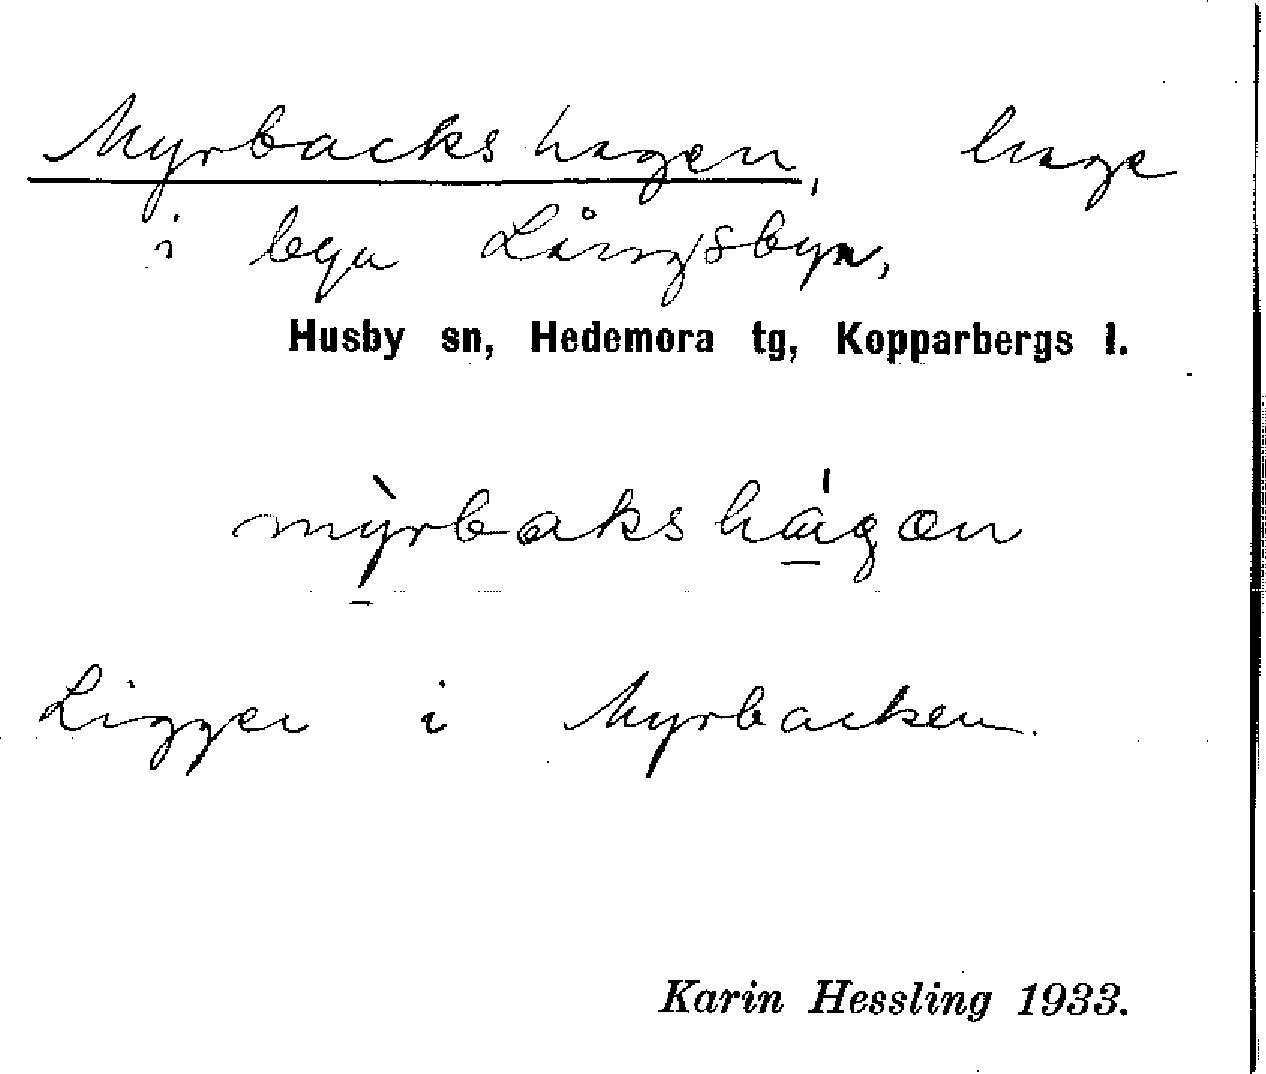 Myrbackshagen, hage
i bya Långsbyn,
Husby sn, Hedemora tg, Kopparbergs l.
mỳrbakshágæn
Ligger i Myrbacken.
Karin Hessling 1933.